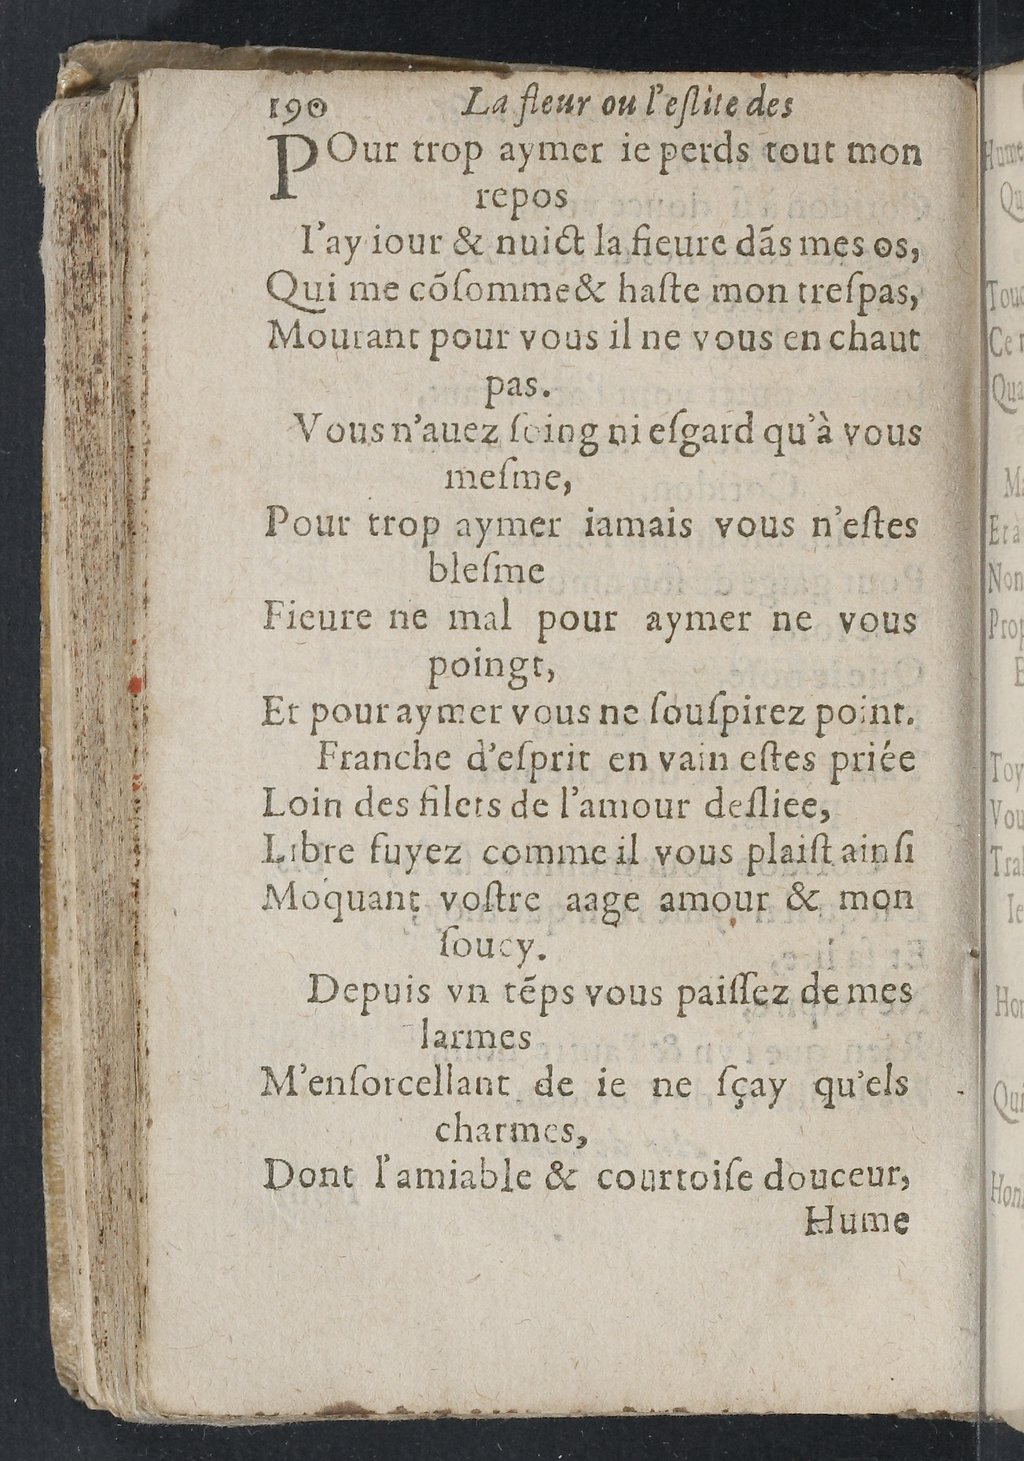 190 La fleur ou l'eſlite des
POur trop aymer ie perds tout mon
repos
I'ay iour & nuict la fieure dãs mes os,
Qui me cõſomme & haſte mon treſpas,
Mourant pour vous il ne vous en chaut
pas.
Vous n'auez ſoing ni eſgard qu'à vous
meſme,
Pour trop aymer iamais vous n'eſtes
bleſme
Fieure ne mal pour aymer ne vous
poingt,
Et pour aymer vous ne ſouſpirez point.
Franche d'eſprit en vain eſtes priée
Loin des filets de l'amour deſliee,
Libre fuyez comme il vous plaiſt ainſi
Moquant voſtre aage amour & mon
ſoucy.
Depuis vn tẽps vous paiſſez de mes
larmes
M'enſorcellant de ie ne ſçay qu'els
charmes,
Dont l'amiable & courtoiſe douceur,
Hume